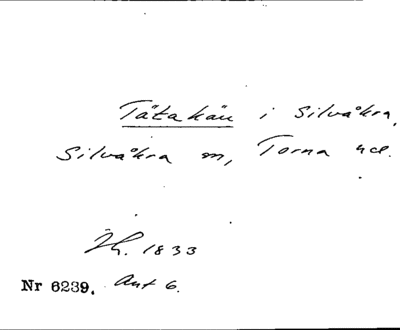 Tätakän i Silvåkra,
Silvåkra sn, Torna hd.
Jh. 1833
Nr 6239. Ant 6.